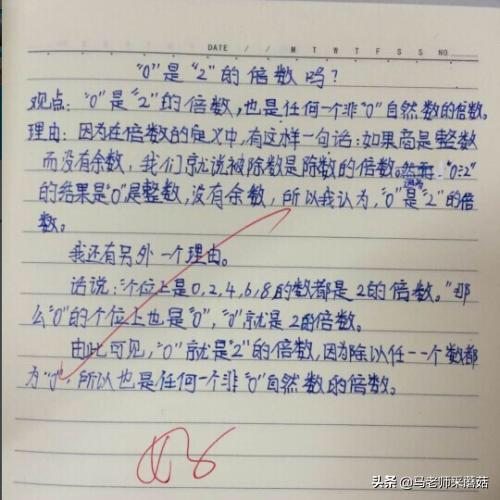 DATE / / M T W T F S S NO.
"0"是"2"的倍数吗?
观点:"0"是"2"的倍数,也是任何一个非"0"自然数的倍数。
理由:因为在倍数的定义中,有这样一句话:如果商是整数
而没有余数,我们就说被除数是除数的倍数。"0÷2"
的结果是"0"是整数,没有余数,所以我认为,"0"是"2"的倍
数。
我还有另外一个理由。
话说:"个位上是0,2,4,6,8的数都是2的倍数。"那
么"0"的个位上也是"0","0"就是2的倍数。
由此可见,"0"就是"2"的倍数,因为除以任一一个数都
为"0",所以也是任何一个非"0"自然数的倍数。
头条 @马老师采蘑菇